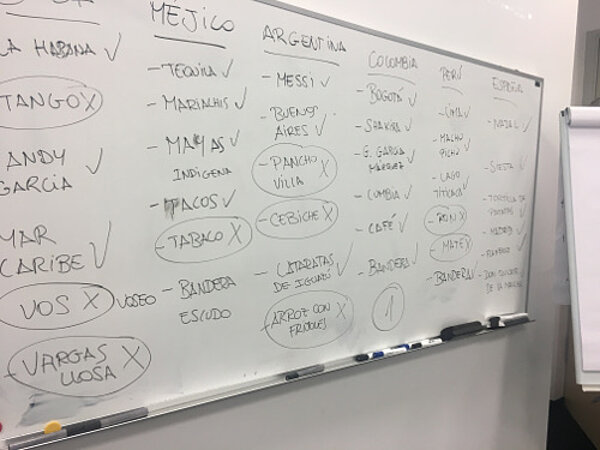 LA HABANA ✓
TANGO X
ANDY
GARCIA ✓
MAR
CARIBE ✓
VOS X VOSEO
- VARGAS
LLOSA X
MÉJICO
- TEQUILA ✓
- MARIACHIS ✓
- MAYAS ✓
INDIGENA
- TACOS ✓
- TABACO X
- BANDERA
ESCUDO
ARGENTINA
- MESSI ✓
- BUENOS
AIRES ✓
- PANCHO
VILLA X
- CEBICHE X
- CATARATAS
DE IGUAZÚ ✓
- ARROZ CON
FRIJOLES X
COLOMBIA
- BOGOTÁ ✓
- SHAKIRA ✓
- G. GARCIA
MÁRQUEZ ✓
- CUMBIA ✓
- CAFÉ ✓
- BANDERA ✓
1
PERÚ
- LIMA ✓
- MACHO
PICHU ✓
- LAGO
TITICACA ✓
- RON X
- MATE X
- BANDERA ✓
ESPAÑA
- NADAL ✓
- SIESTA ✓
- TORTILLA DE
PATATAS ✓
- MADRID ✓
- FLAMENCO ✓
- DON QUIJOTE
DE LA MANCHA